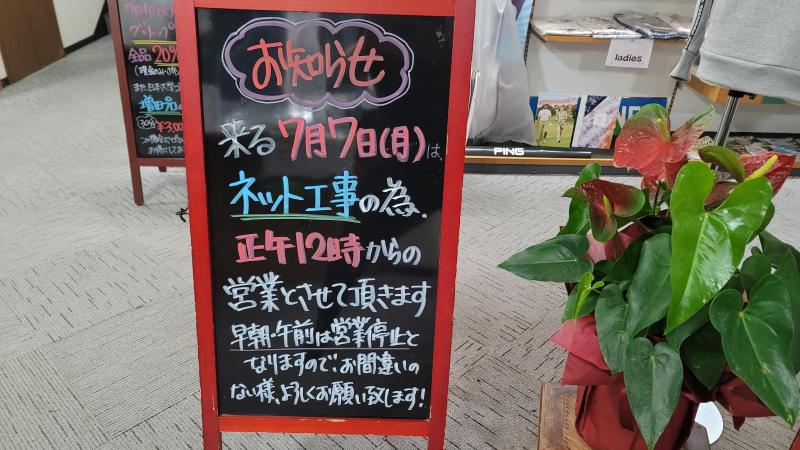 お知らせ
来る7月7日(月)は、
ネット工事の為、
正午12時からの
営業とさせて頂きます
早朝・午前は営業停止と
なりますので、お間違いの
ない様、よろしくお願い致します!
全品20%
増田プロ
30分
ladies
PING